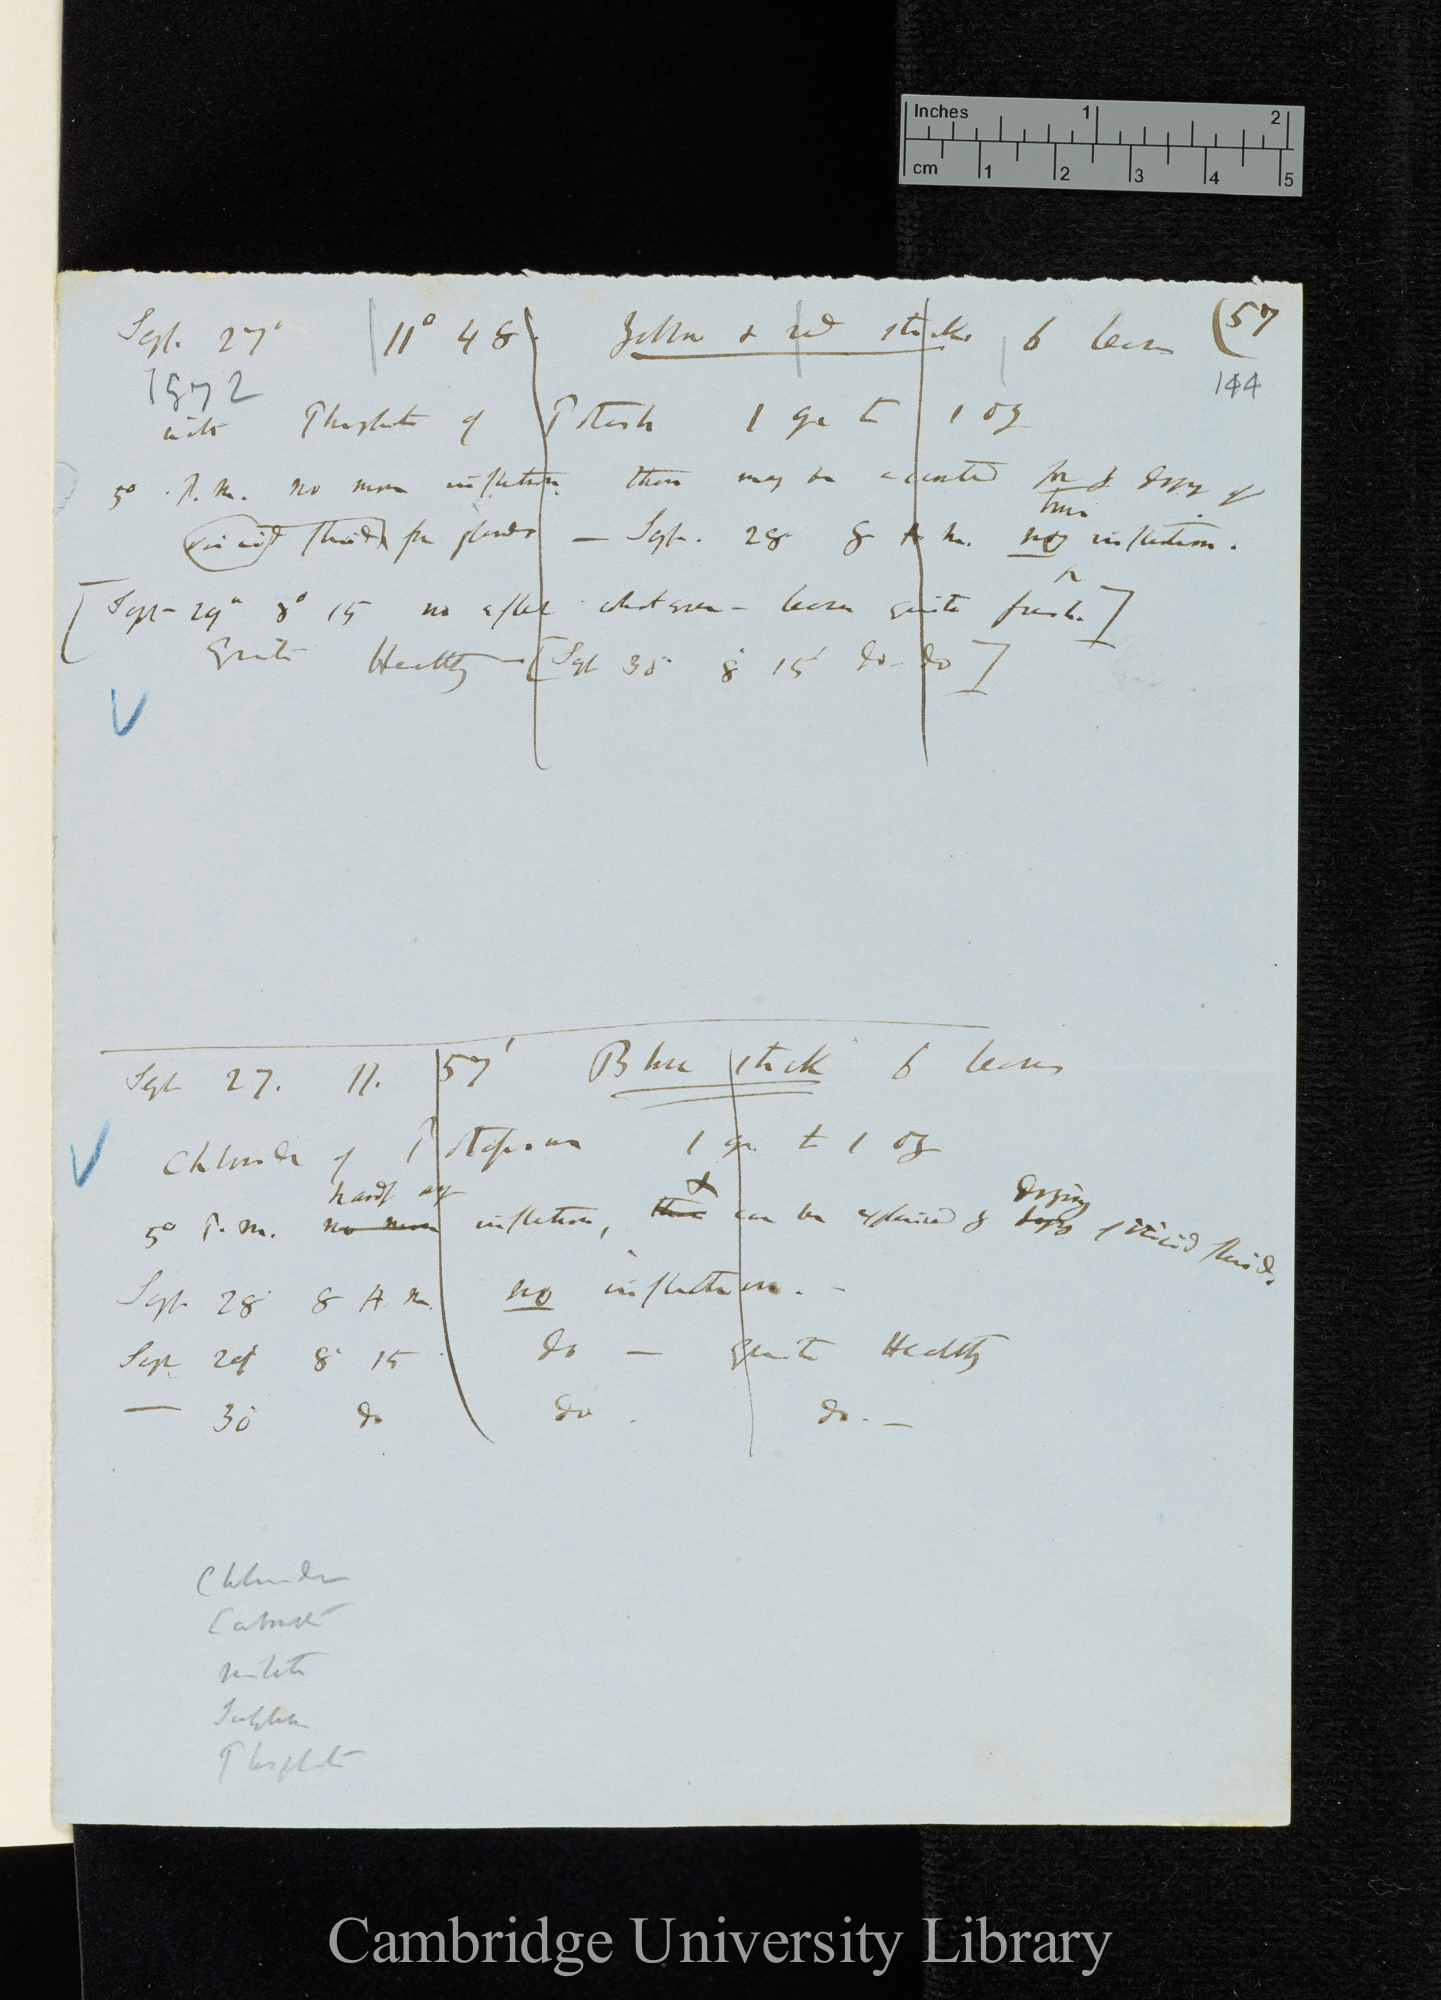 Inches 1 2
cm 1 2 3 4 5
Sept. 27' 11° 48' Yellow & red sticks 6 leaves (57
1872 144
into Phosphate of Potash 1 gr to 1 oz
5° P.M. no more inflection than may be accounted for by drying of
viscid fluid from glands — Sept. 28 8 A.M. no true inflection.
[Sept 29° 8° 15 no effect whatever — leaves quite fresh.]
Quite Healthy — [Sept 30 8° 15' do — do]
Sept 27. 11. 57' Blue stick 6 leaves
Chloride of Potassium 1 gr. to 1 oz
hardly any drying
5° P.M. no more inflection, than can be explained by of viscid fluid.
Sept 28 8 A.M. no inflection. —
Sept 29 8° 15 do — quite Healthy
— 30 do do. do. —
Chloride
Carbonate
nitrate
Sulphate
Phosphate
Cambridge University Library